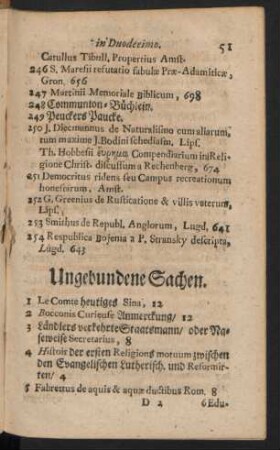 in Duodecimo. 51
Catullus Tibull, Propertius Amst.
246 S. Maresii refutatio fabulæ Præ-Adamiticæ,
Gron. 656
247 Martinii Memoriale Biblicum, 698
248 Communion-Büchlein.
249 Peuckers Paucke.
250 J. Diecmannus de Naturalismo cum aliarum,
tum maxime J. Bodini schediasin. Lips.
Th. Hobbesii Compendiarium in Reli-
gione Christ. discussum a Rechenberg, 674
251 Democritus ridens seu Campus recreationum
honestarum, Amst.
252 G, Greenius de Rusticatione & villis veterum,
Lips.
253 Smithus de Republ. Anglorum, Lugd. 641
254 Respublica Bojema a P. Stransky descripta,
Lugd. 643
Ungebundene Sachen.
1 Le Comte heutiges Sina, 12
2 Bocconis Curieuse Anmerckung/ 12
3 Ländlers verkehrte Staatsmann/ oder Na-
seweise Secretarius, 8
4 Histoir der ersten Religions motuum zwischen
den Evangelischen Lutherisch. und Reformir-
ten/ 4
5 Fabrettus de aquis & aquæ ductibus Rom. 8
D 2 6 Edu-